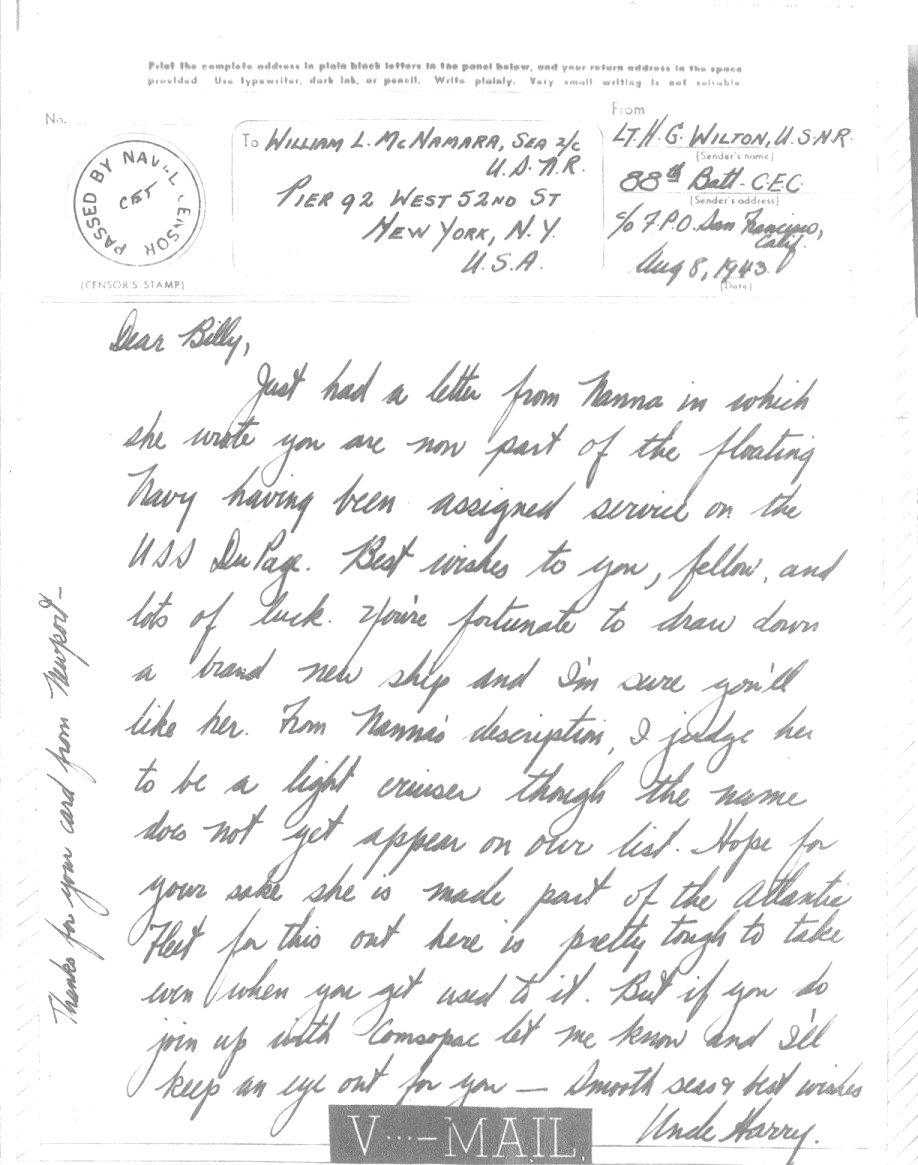 Print the complete address in plain block letters in the panel below, and your return address in the space
provided. Use typewriter, dark ink, or pencil. Write plainly. Very small writing is not suitable.
No.
PASSED BY NAVAL CENSOR
CET
(CENSOR'S STAMP)
To WILLIAM L. McNAMARA, SEA 2/c
U.S.N.R.
PIER 92 WEST 52ND ST
NEW YORK, N.Y.
U.S.A.
From
LT. H. G. WILTON, U.S.N.R.
(Sender's name)
88th Batt - C.E.C.
(Sender's address)
c/o F.P.O. San Francisco,
Calif.
Aug 8, 1943
(Date)
Dear Billy,
Just had a letter from Nanna in which
she wrote you are now part of the floating
Navy having been assigned service on the
USS DuPage. Best wishes to you, fellow, and
lots of luck. You're fortunate to draw down
a brand new ship and I'm sure you'll
like her. From Nanna's description, I judge her
to be a light cruiser though the name
does not yet appear on our list. Hope for
your sake she is made part of the Atlantic
Fleet for this out here is pretty tough to take
even when you get used to it. But if you do
join up with Comsopac let me know and I'll
keep an eye out for you — Smooth seas & best wishes
Uncle Harry.
Thanks for your card from Newport –
V···–MAIL